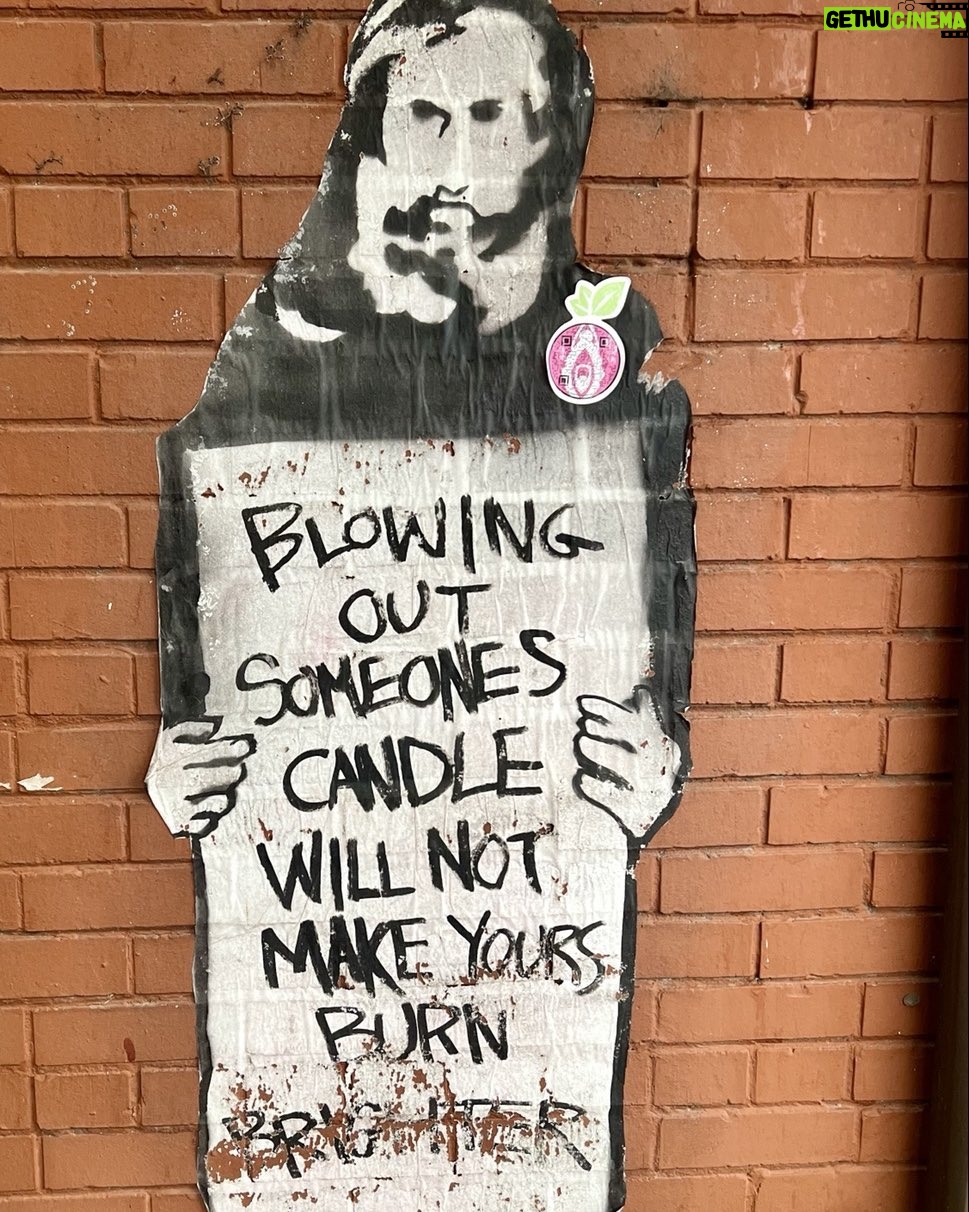 GETHUCINEMA
BLOWING
OUT
SOMEONES
CANDLE
WILL NOT
MAKE YOURS
BURN
BRIGHTER